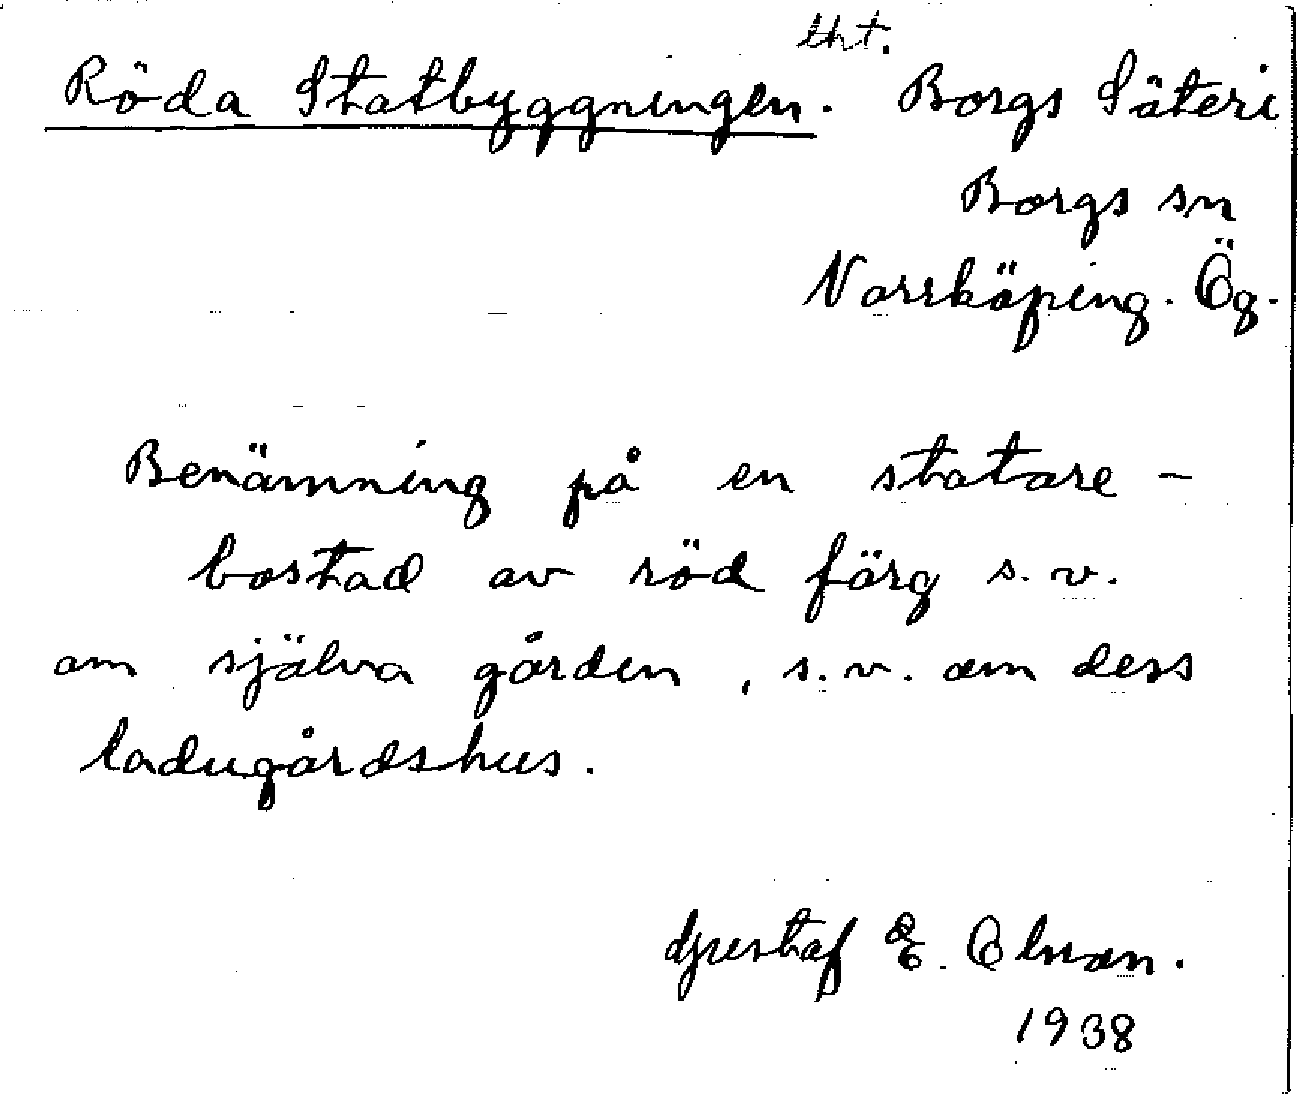 lht.
Röda Statbyggningen. Borgs Säteri
Borgs sn
Norrköping. Ög.
Benämning på en statare-
bostad av röd färg s.v.
om själva gården, s.v. om dess
ladugårdshus.
Gustaf E.
1938